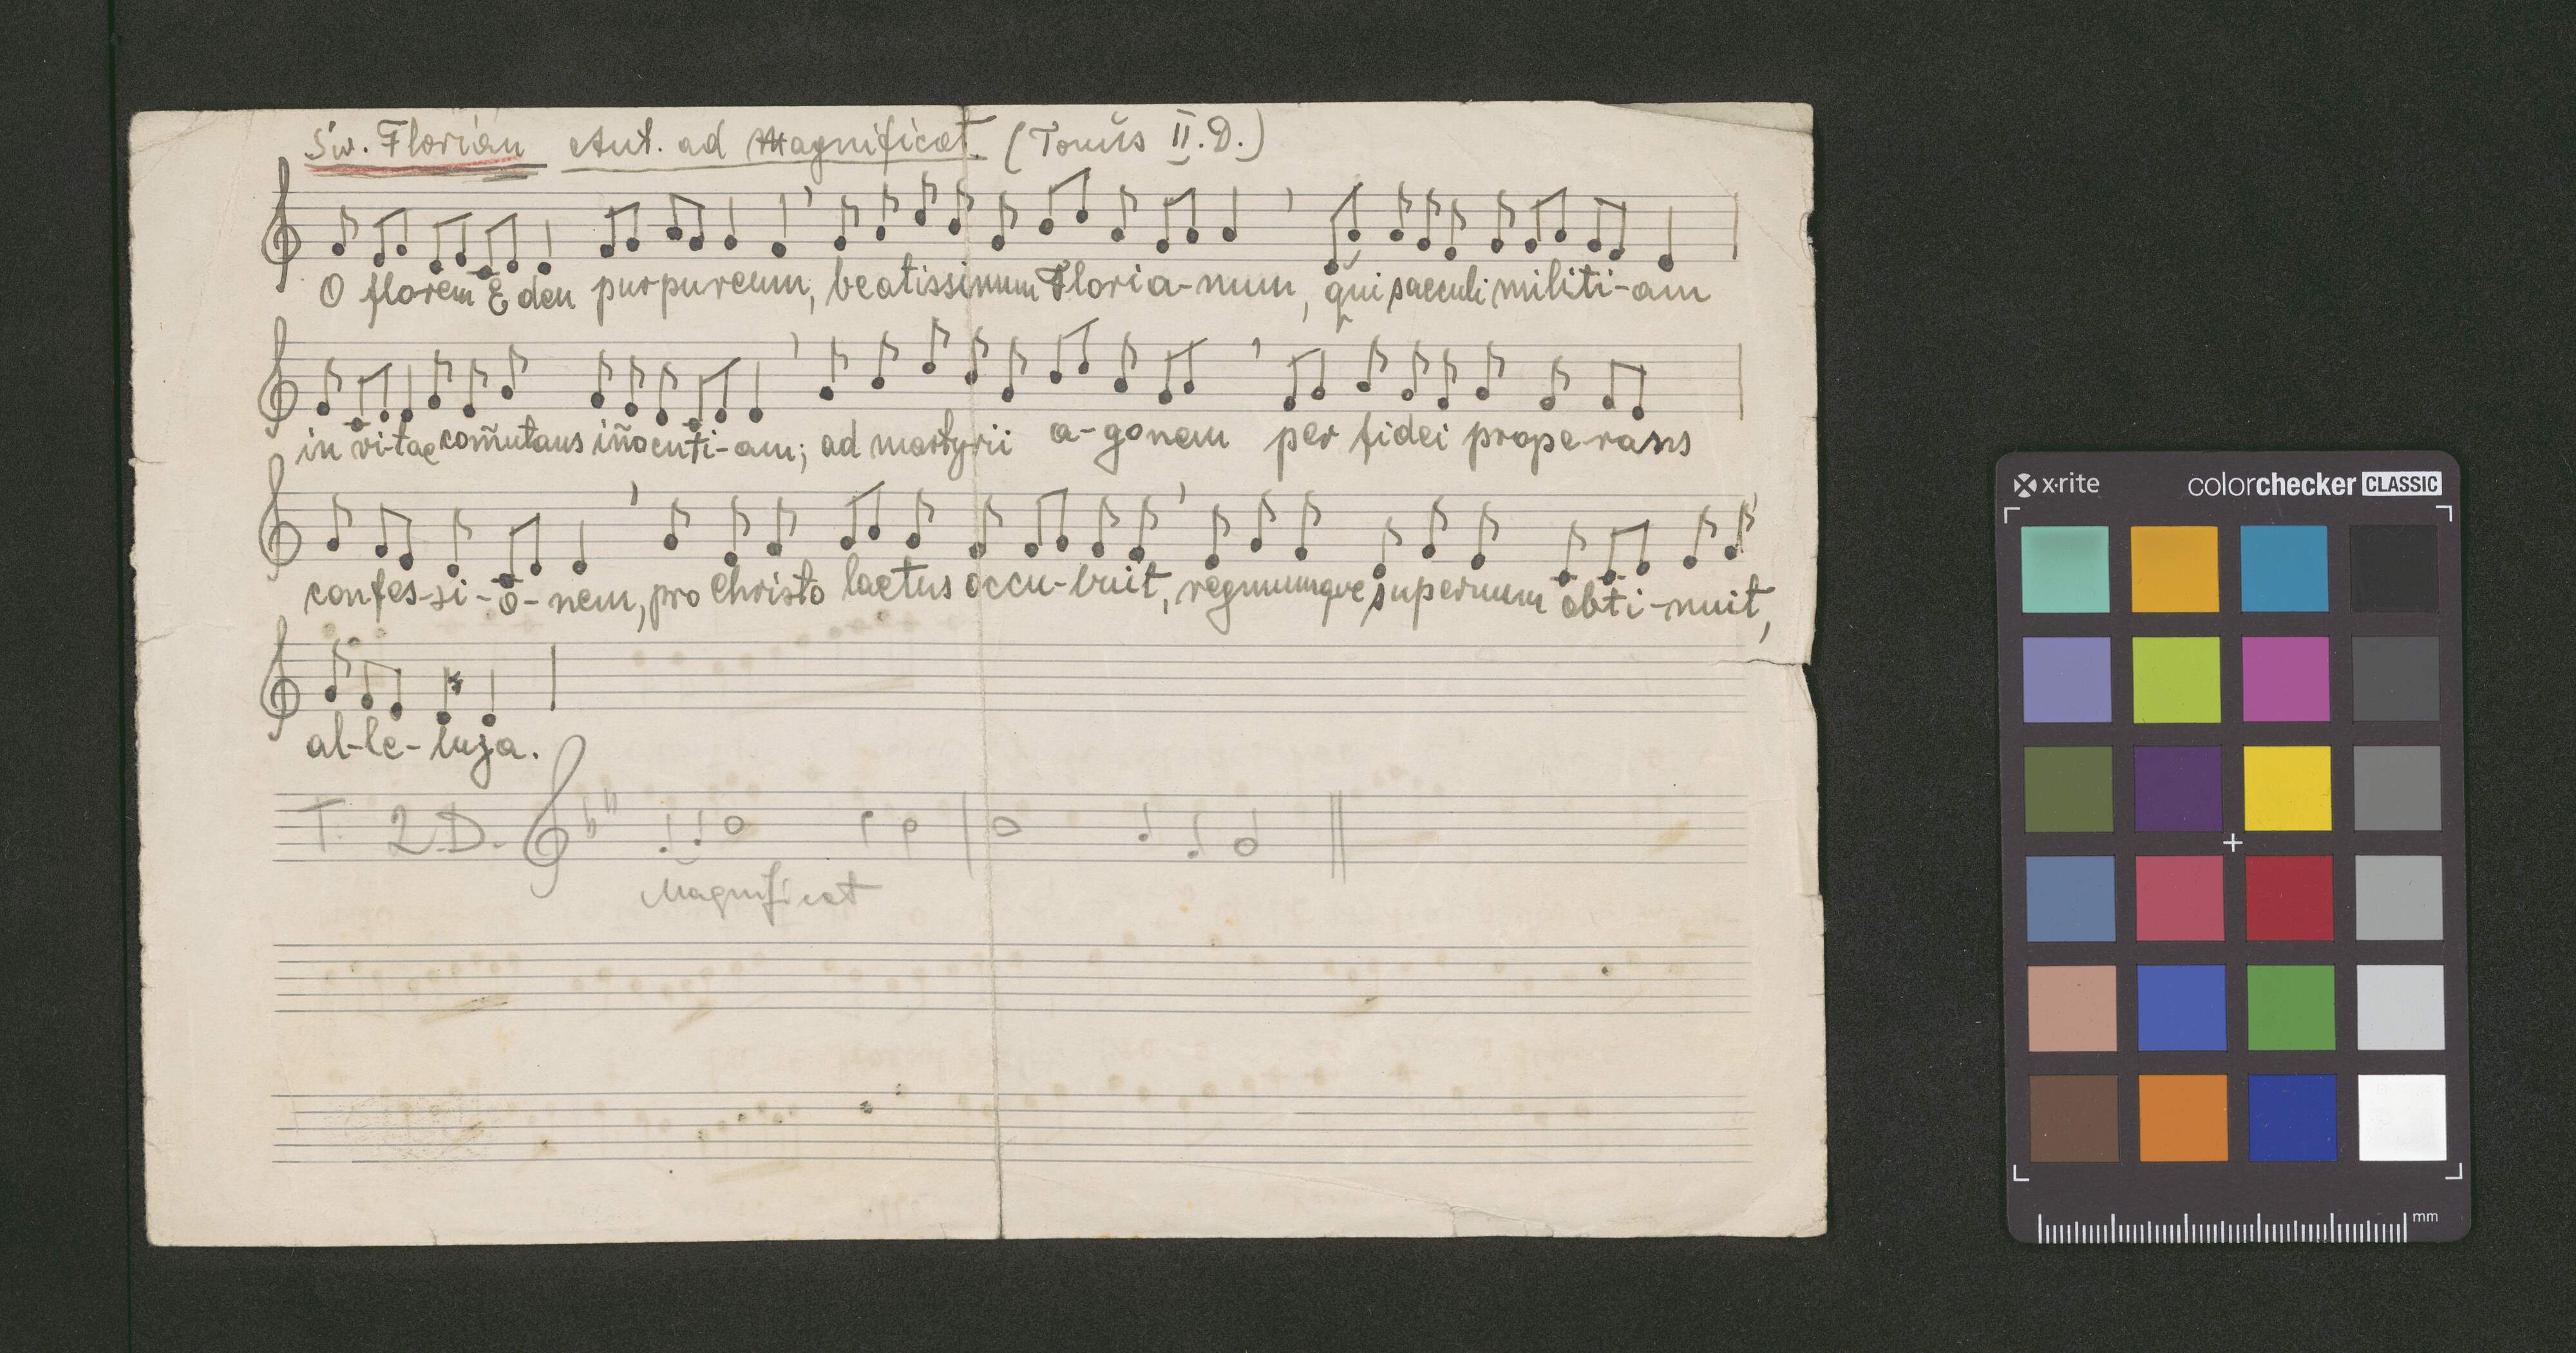 Św. Florian Ant. ad Magnificat. (Tonŭs II.D.)
O florem Eden purpureum, beatissimum Floria-num, qui saeculi militi-am
in vi-tae com̃utans iño centi-am; ad martyrii a-gonem per fidei prope-rans
confes-si-o-nem, pro Christo laetus occu-buit, regnumque supernum obti-nuit,
al-le-luja.
T. 2.D.
Magnificat
x·rite colorchecker CLASSIC
mm